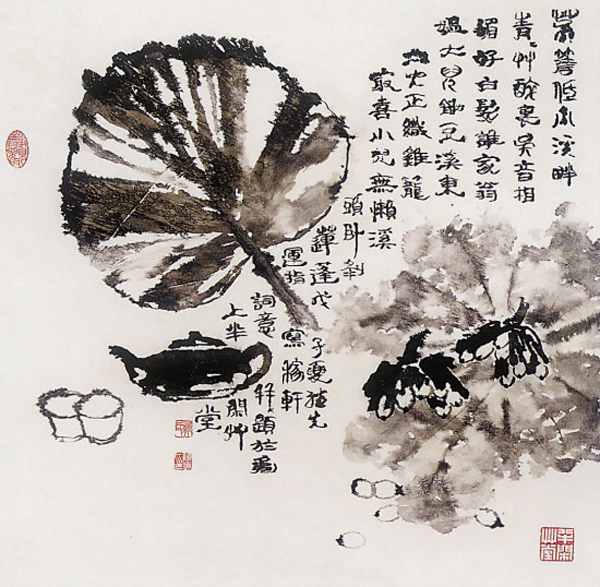 茅簷低小溪畔
青〃艸醉裏吳音相
媚好白髮誰家翁
媼大兒鋤豆溪東
正織雞籠
最喜小兒無懶溪
頭卧剝
蓮蓬戊
子夏 先
運指
寫稼軒
詞意
題於
上半
閑艸
堂
半閑
艸堂